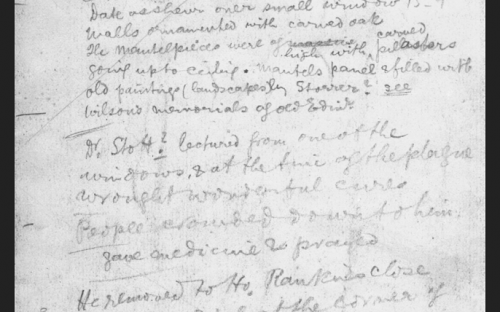 Date as shewn over small window 15-9
Walls ornamented with carved oak
The Mantelpieces were of high with carved pilasters
going up to ceiling. Mantels panel & filled with
old paintings (landscapes) by ? see
Wilsons memorials of old Edinr
Dr Stott? lectured from one of the
windows, & at the time of the plague
wrought wonderful cures
People crowded down to him
gave medicine & prayed
He removed to Ho. Rankines close
at the corner of